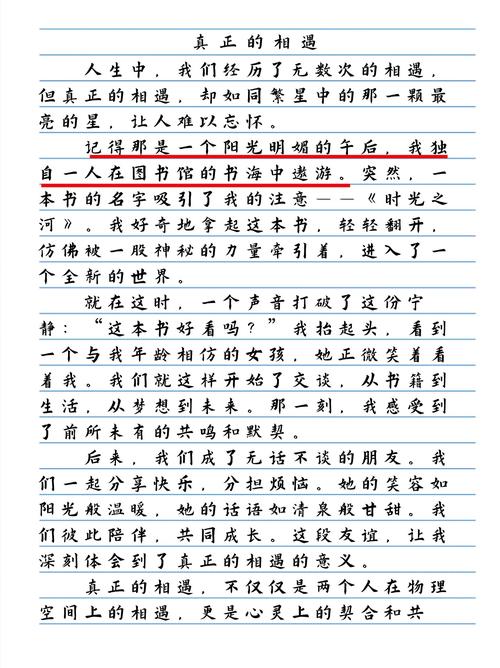 真正的相遇
人生中，我们经历了无数次的相遇，
但真正的相遇，却如同繁星中的那一颗最
亮的星，让人难以忘怀。
记得那是一个阳光明媚的午后，我独
自一人在图书馆的书海中遨游。突然，一
本书的名字吸引了我的注意——《时光之
河》。我好奇地拿起这本书，轻轻翻开，
仿佛被一股神秘的力量牵引着，进入了一
个全新的世界。
就在这时，一个声音打破了这份宁
静：“这本书好看吗？”我抬起头，看到
一个与我年龄相仿的女孩，她正微笑着看
着我。我们就这样开始了交谈，从书籍到
生活，从梦想到未来。那一刻，我感受到
了前所未有的共鸣和默契。
后来，我们成了无话不谈的朋友。我
们一起分享快乐，分担烦恼。她的笑容如
阳光般温暖，她的话语如清泉般甘甜。我
们彼此陪伴，共同成长。这段友谊，让我
深刻体会到了真正的相遇的意义。
真正的相遇，不仅仅是两个人在物理
空间上的相遇，更是心灵上的契合和共